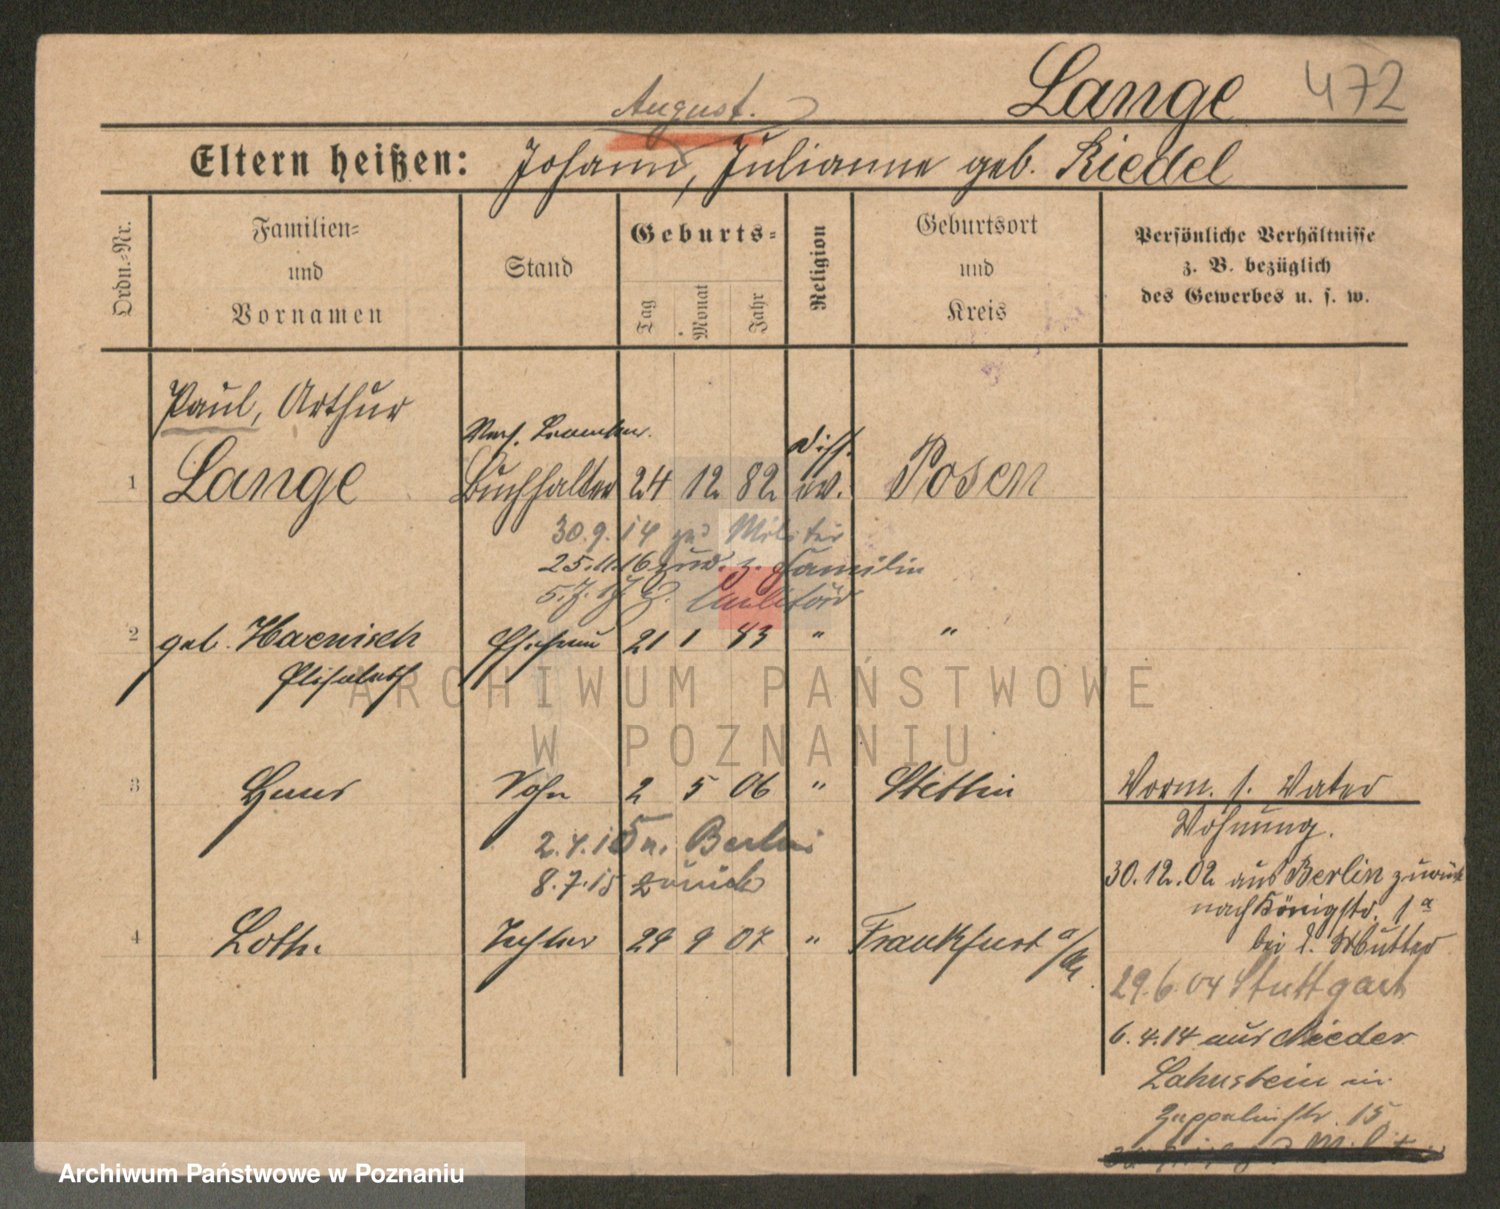 Lange 472
August.
Eltern heißen: Johann, Julianne geb. Riedel
Ordn.-Nr.
Familien-
und
Vornamen
Stand
Geburts-
Tag
Monat
Jahr
Religion
Geburtsort
und
Kreis
Persönliche Verhältnisse
z. B. bezüglich
des Gewerbes u. s. w.
Paul, Arthur
Vers. Beamter.
Diss.
1 Lange Buchhalter 24 12 82 ev. Posen
30.9.14 zu Militär
25.11.16 zur. z. Familie
2 geb. Haenisch Ehefrau 21 1 83 " "
Elisabeth
3 Hans Sohn 2 5 06 " Stettin
2.4.15 n. Berlin
8.7.15 zurück
4 Lotte Tochter 29 9 07 " Frankfurt a/M.
Vorm. s. Vater
Wohnung.
30.12.02 aus Berlin zurück
nach Königstr. 1a
bei d. Mutter
29.6.04 Stuttgart
6.4.14 aus Nieder
Lahnstein in
Zeppelinstr. 15
ARCHIWUM PAŃSTWOWE
W POZNANIU
Archiwum Państwowe w Poznaniu